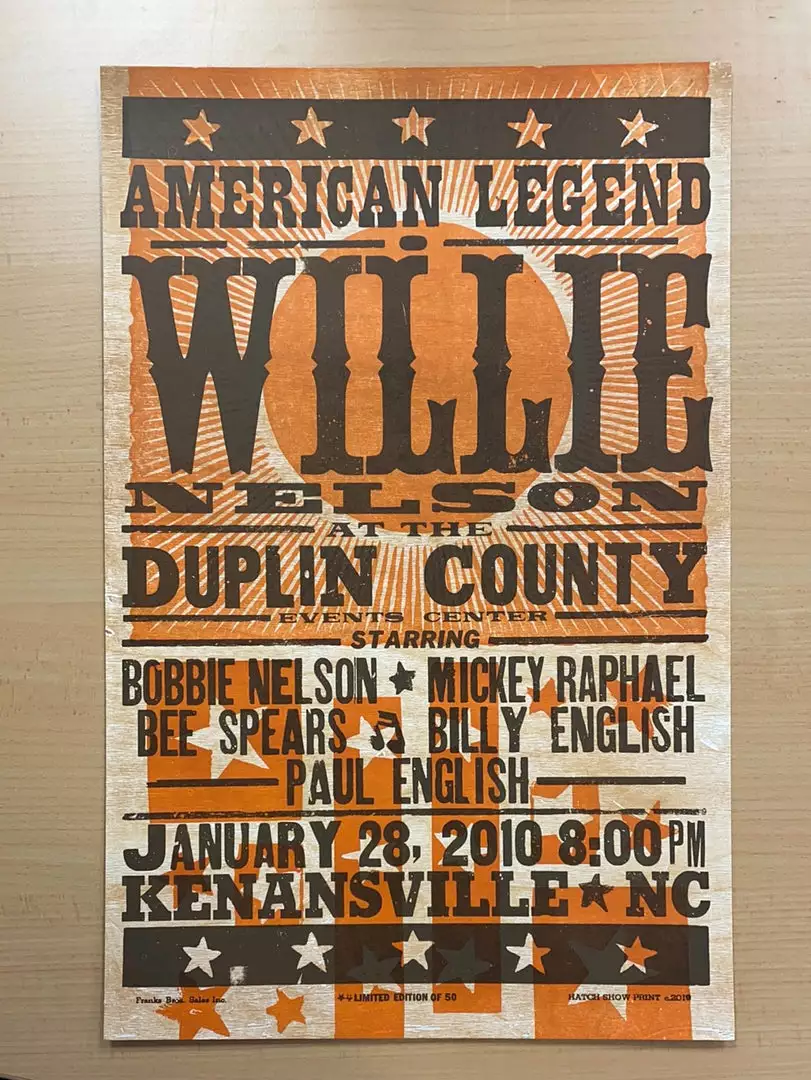 AMERICAN LEGEND
WILLIE
NELSON
AT THE
DUPLIN COUNTY
EVENTS CENTER
STARRING
BOBBIE NELSON ★ MICKEY RAPHAEL
BEE SPEARS ♫ BILLY ENGLISH
PAUL ENGLISH
JANUARY 28, 2010 8:00 PM
KENANSVILLE ★ NC
Franks Bros. Sales Inc. LIMITED EDITION OF 50 HATCH SHOW PRINT c.2010